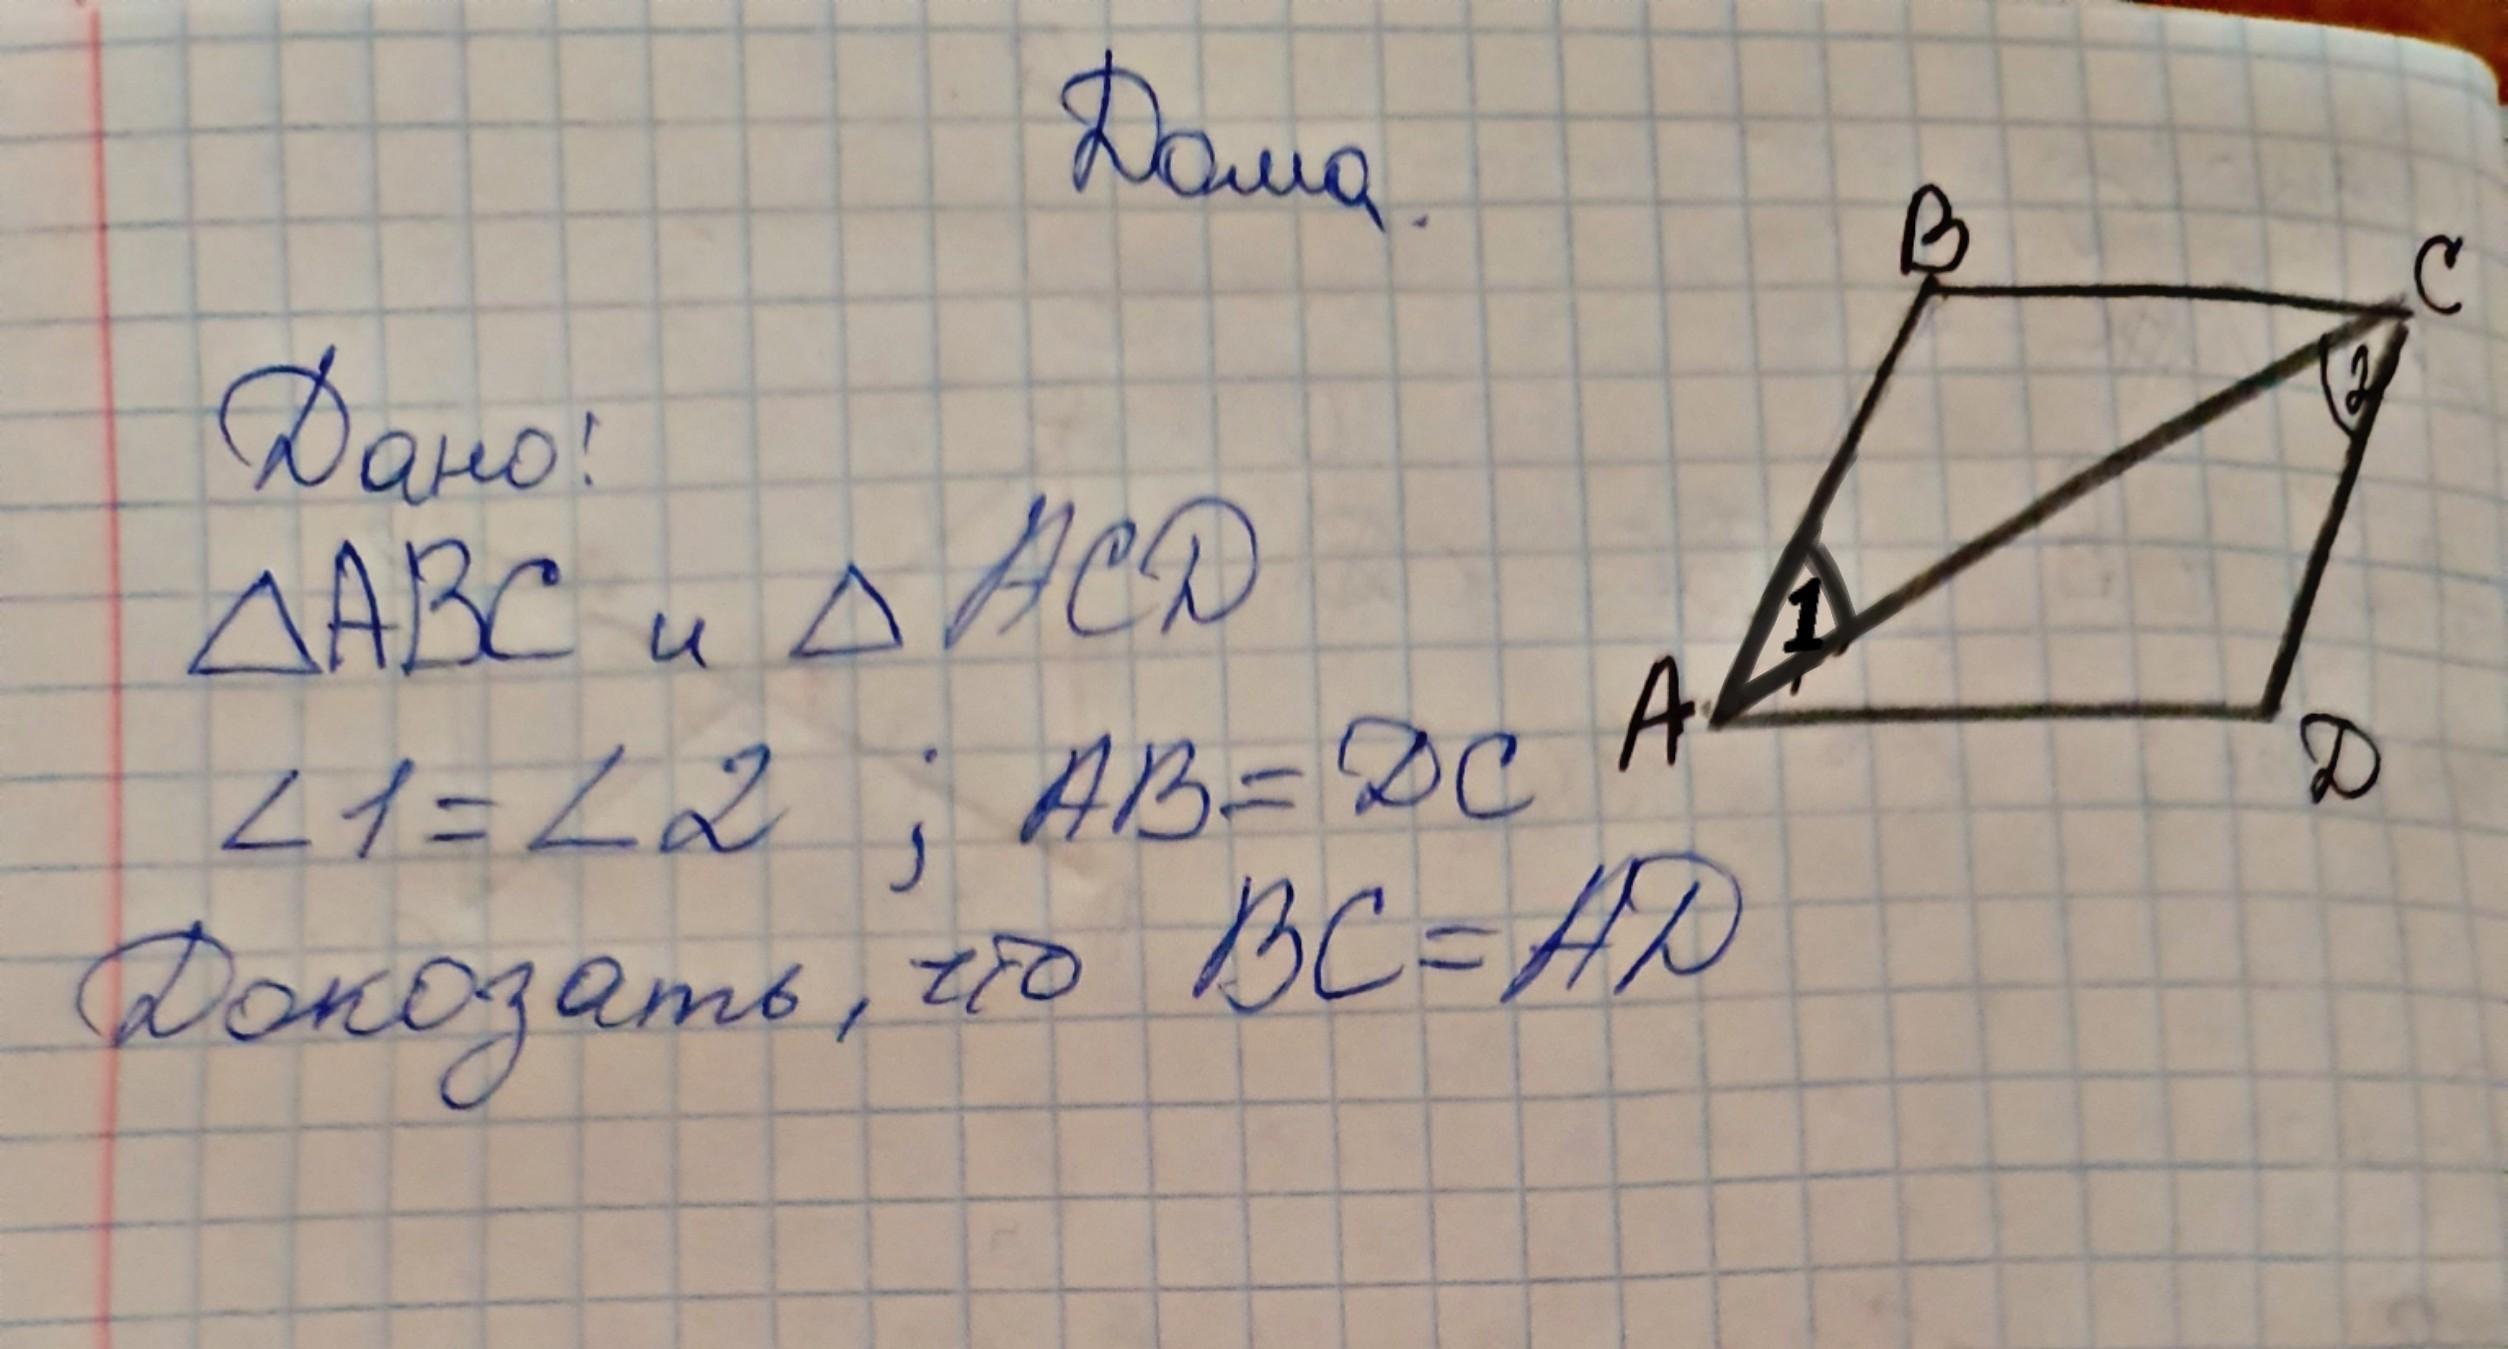 Дома.
Дано!
△ABC и △ACD
∠1=∠2 ; AB=DC
Докозать, что BC=AD
B
C
2
1
A
D